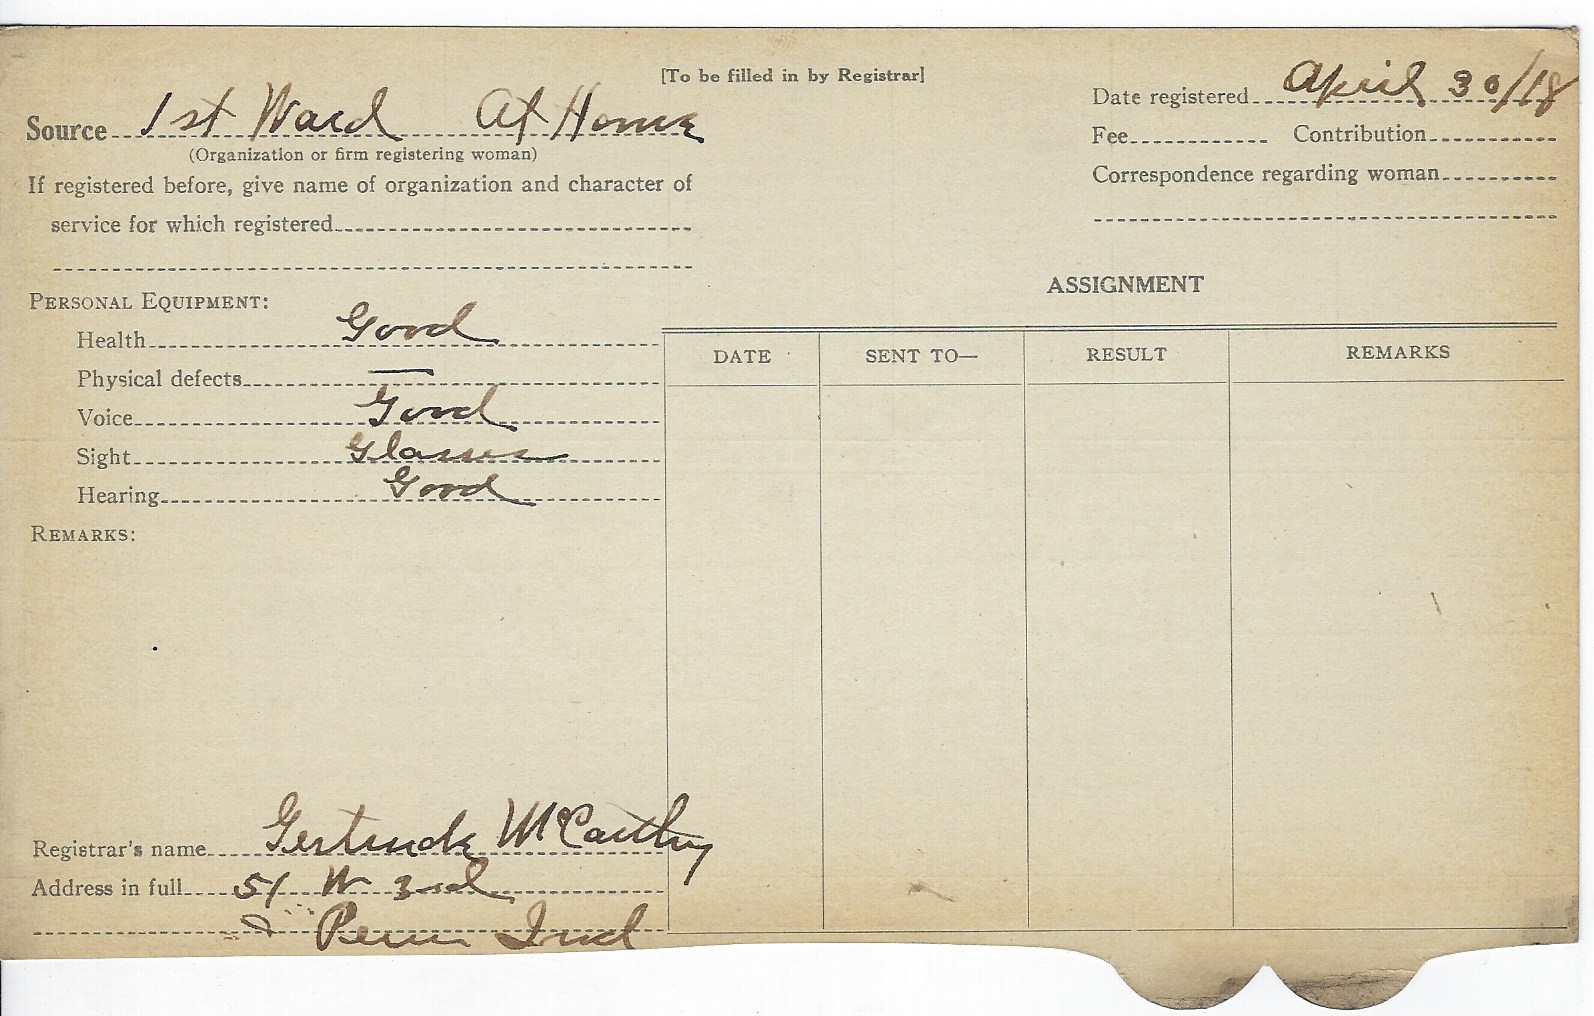 [To be filled in by Registrar]
Source 1st Ward At Home
(Organization or firm registering woman)
If registered before, give name of organization and character of
service for which registered
Date registered April 30/18
Fee Contribution
Correspondence regarding woman
PERSONAL EQUIPMENT:
Health Good
Physical defects —
Voice Good
Sight Glasses
Hearing Good
REMARKS:
ASSIGNMENT
DATE SENT TO— RESULT REMARKS
Registrar's name Gertrude McCarthy
Address in full 51 W 3rd
Peru Ind